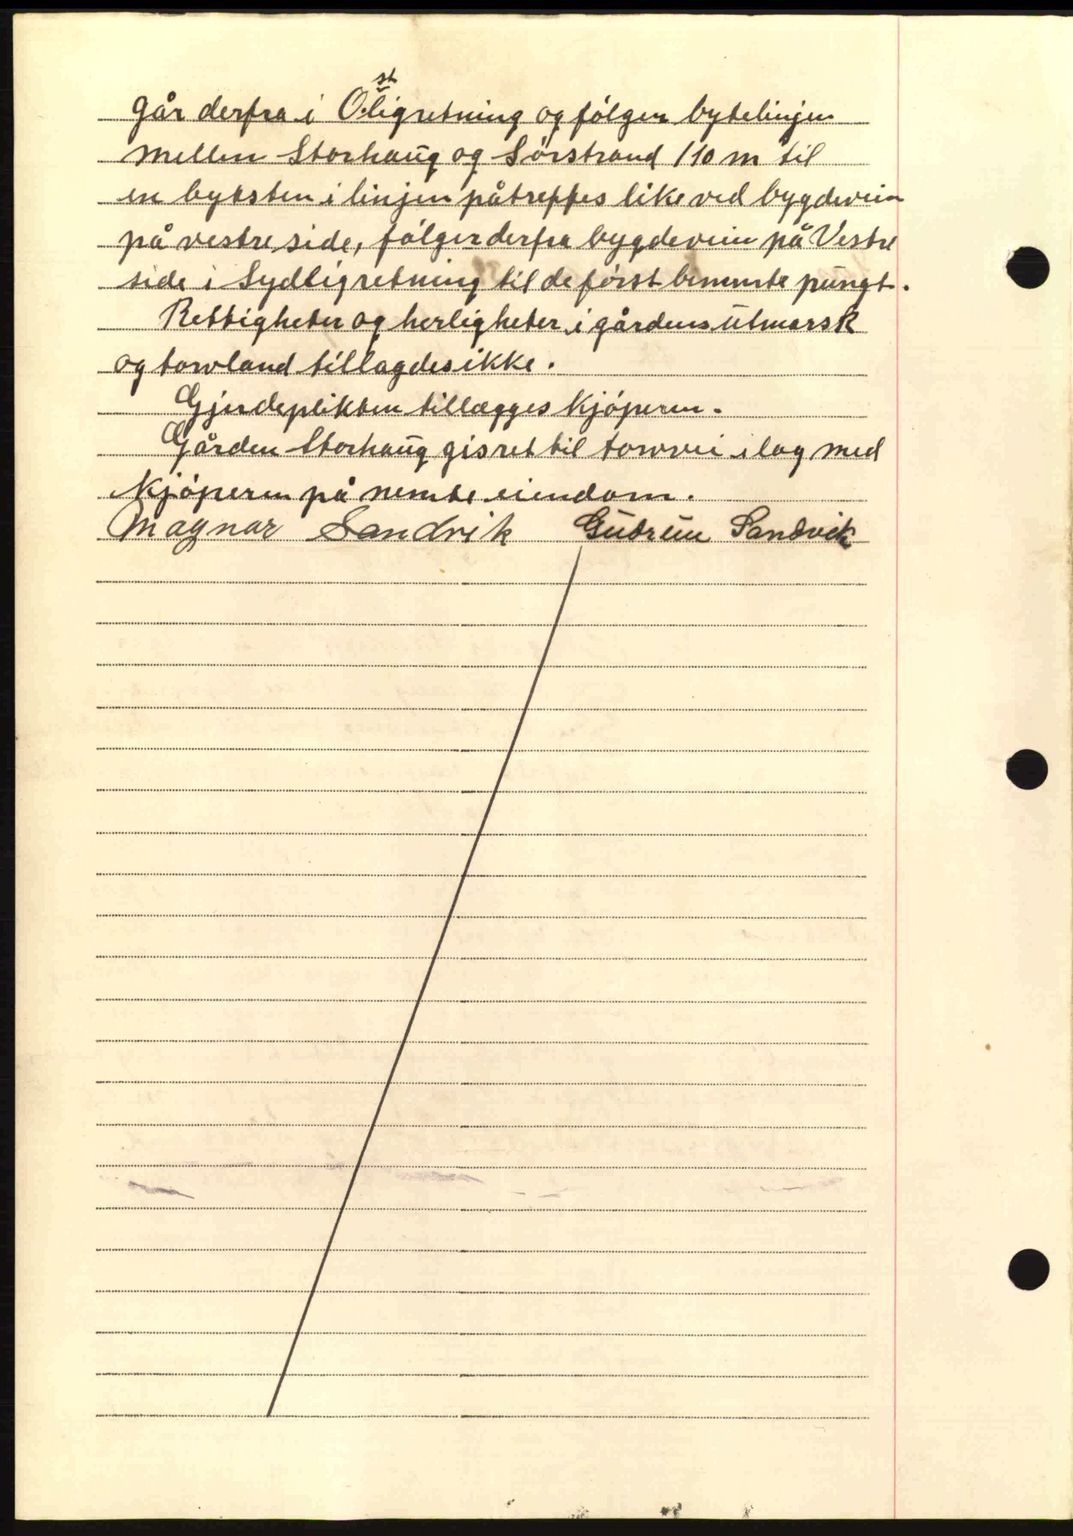 går derfra i Østligretning og følger bytelinjen
mellen Storhaug og Sørstrand 110 m til
en byksten i linjen påtreffes like ved bygdevein
på vestre side, følger derfra bygdevein på Vestre
side i Sydligretning til de først bemmte pungt.
Rettigheter og herligheter i gårdens utmarsk
og torvland tillagdes ikke.
Gjerdeplikten tillægges Kjøperen.
Gården Storhaug gis ret til torvvei i lag med
Kjøperen på nemte eiendom.
Magnar Sandvik Gudrun Sandvik